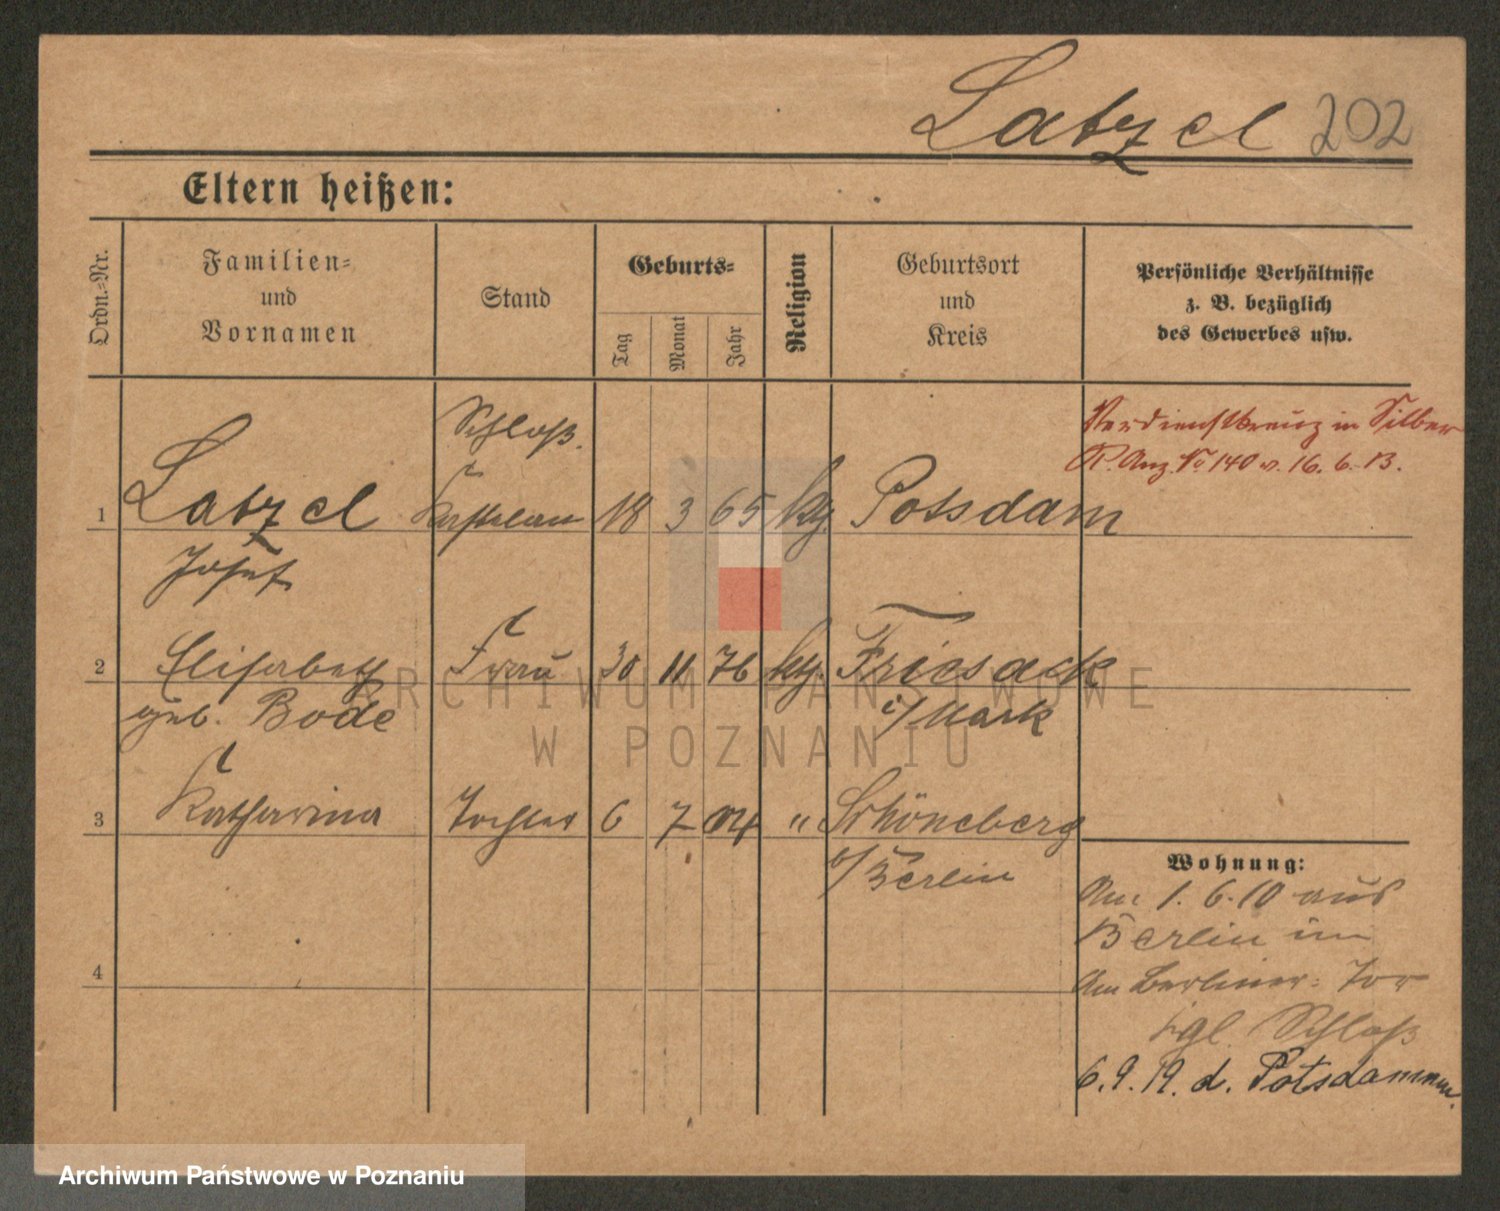 Latzel 202
Eltern heißen:
Ordn.-Nr.
Familien-
und
Vornamen
Stand
Geburts-
Tag
Monat
Jahr
Religion
Geburtsort
und
Kreis
Persönliche Verhältnisse
z. B. bezüglich
des Gewerbes usw.
Verdienstkreuz in Silber
R. Anz. No 140 v. 16. 6. 13.
Schloß
1 Latzel Kastelan 18 3 65 Potsdam
Josef
2 Elisabeth Frau 30 11 76 Friesack
geb. Bode i/Mark
3 Katharina Tochter 6 7 04 " Schöneberg
b/Berlin
4
Wohnung:
Am 1. 6. 10 aus
Berlin
Am Berliner Tor
Kgl. Schloß
6. 9. 19. d. Potsdam
ARCHIWUM PAŃSTWOWE
W POZNANIU
Archiwum Państwowe w Poznaniu